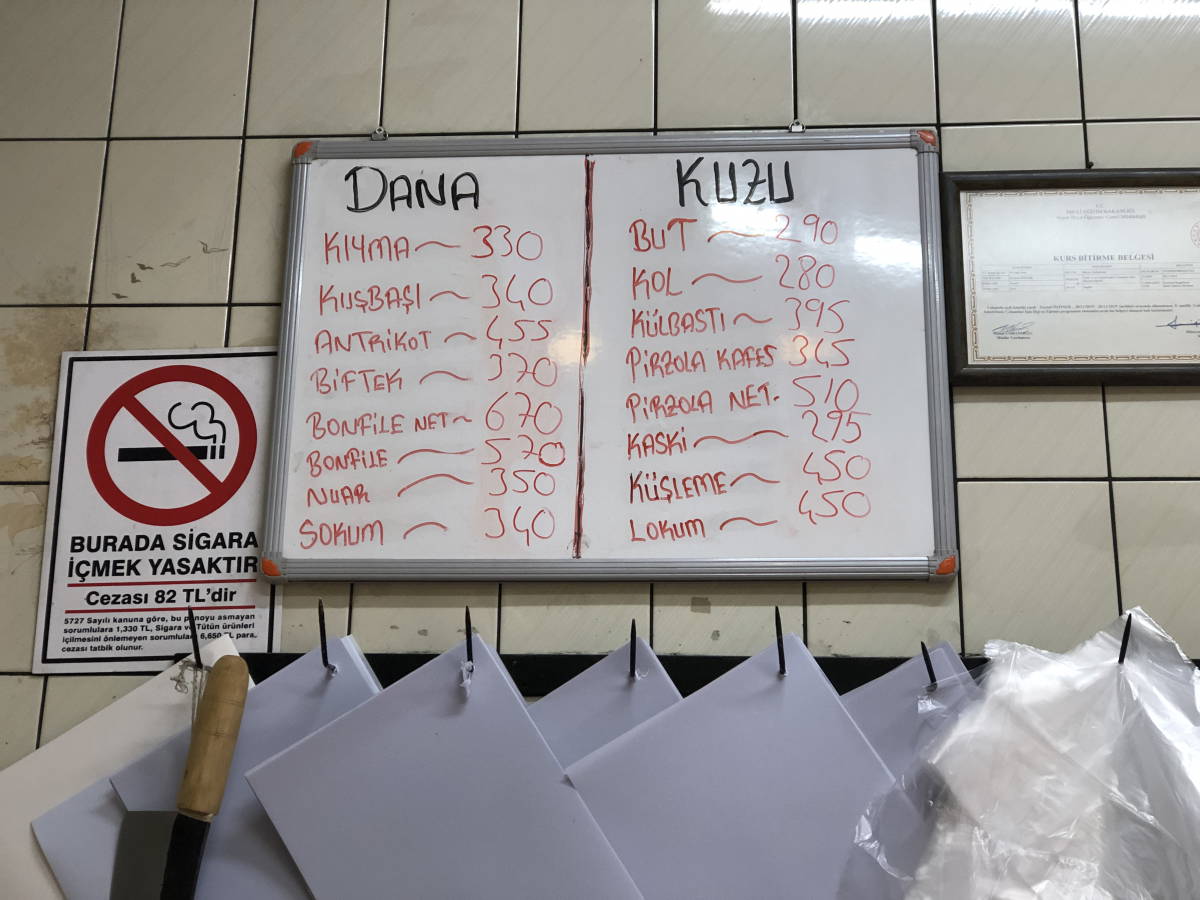 DANA
KIYMA ~ 330
KUŞBAŞI ~ 340
ANTRİKOT ~ 455
BİFTEK ~ 370
BONFİLE NET ~ 670
BONFİLE ~ 570
NUAR ~ 350
SOKUM ~ 340
KUZU
BUT ~ 290
KOL ~ 280
KÜLBASTI ~ 395
PİRZOLA KAFES 345
PİRZOLA NET. 510
KASKİ ~ 295
KÜŞLEME ~ 450
LOKUM ~ 450
BURADA SİGARA
İÇMEK YASAKTIR
Cezası 82 TL'dir
5727 Sayılı kanuna göre, bu panoyu asmayan
sorumlulara 1,330 TL, Sigara ve Tütün ürünleri
içilmesini önlemeyen sorumlulara 6,650 TL para,
cezası tatbik olunur.
T.C.
MİLLİ EĞİTİM BAKANLIĞI
KURS BİTİRME BELGESİ